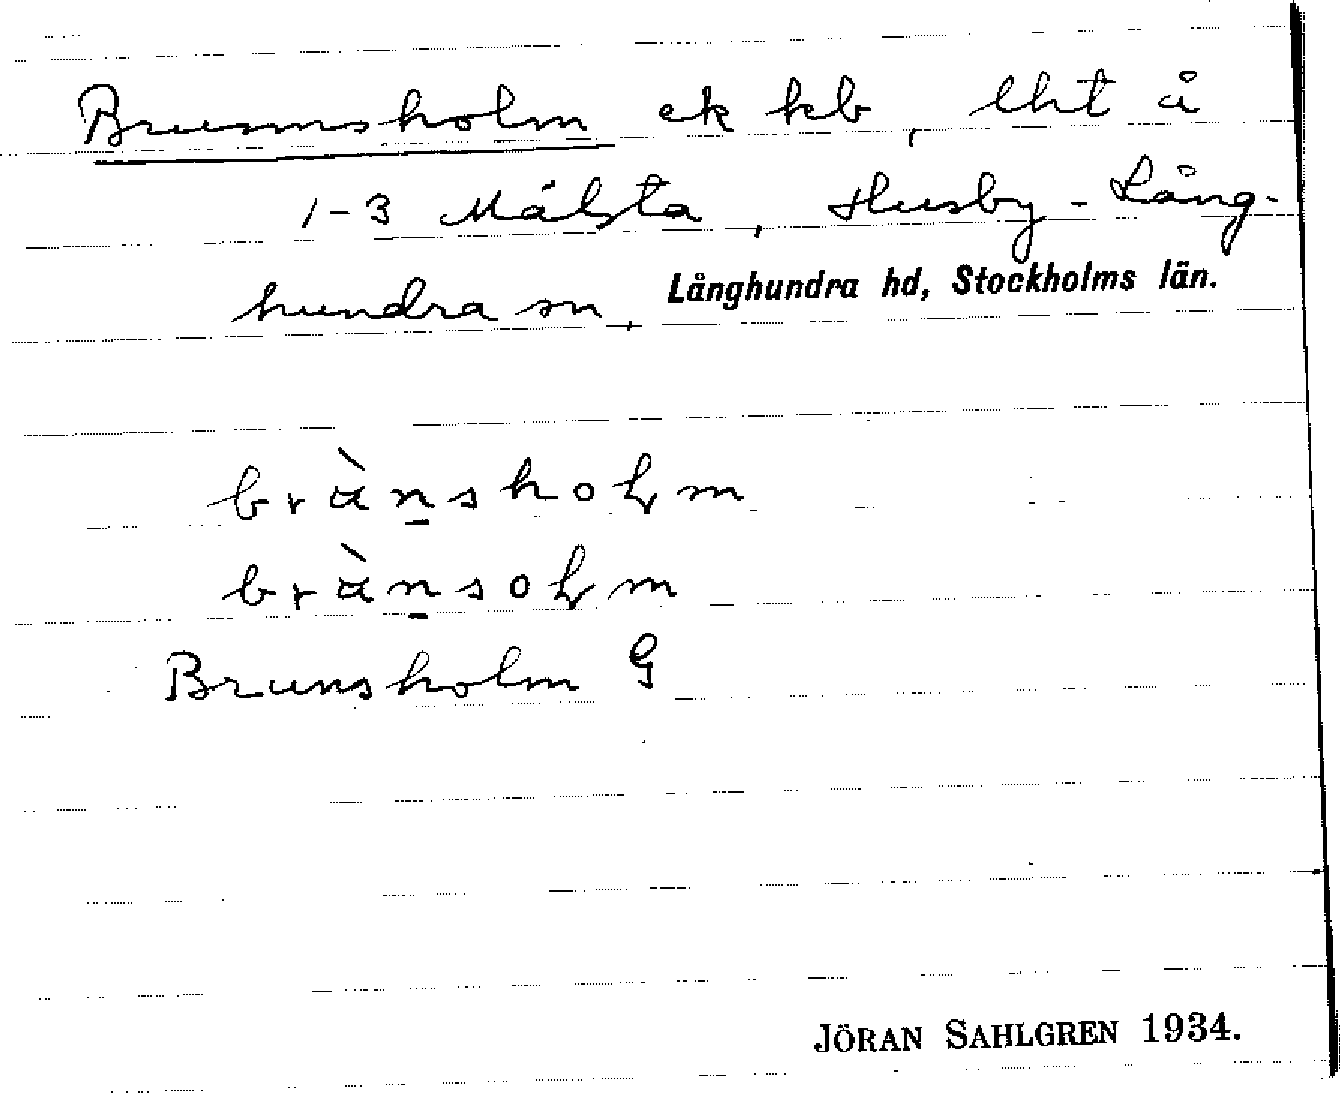 Brunnsholm ek kb, lht å
1-3 Mälsta, Husby-Lång-
hundra sn, Långhundra hd, Stockholms län.
brànsholm
brànsolm
Brunsholm G
JÖRAN SAHLGREN 1934.